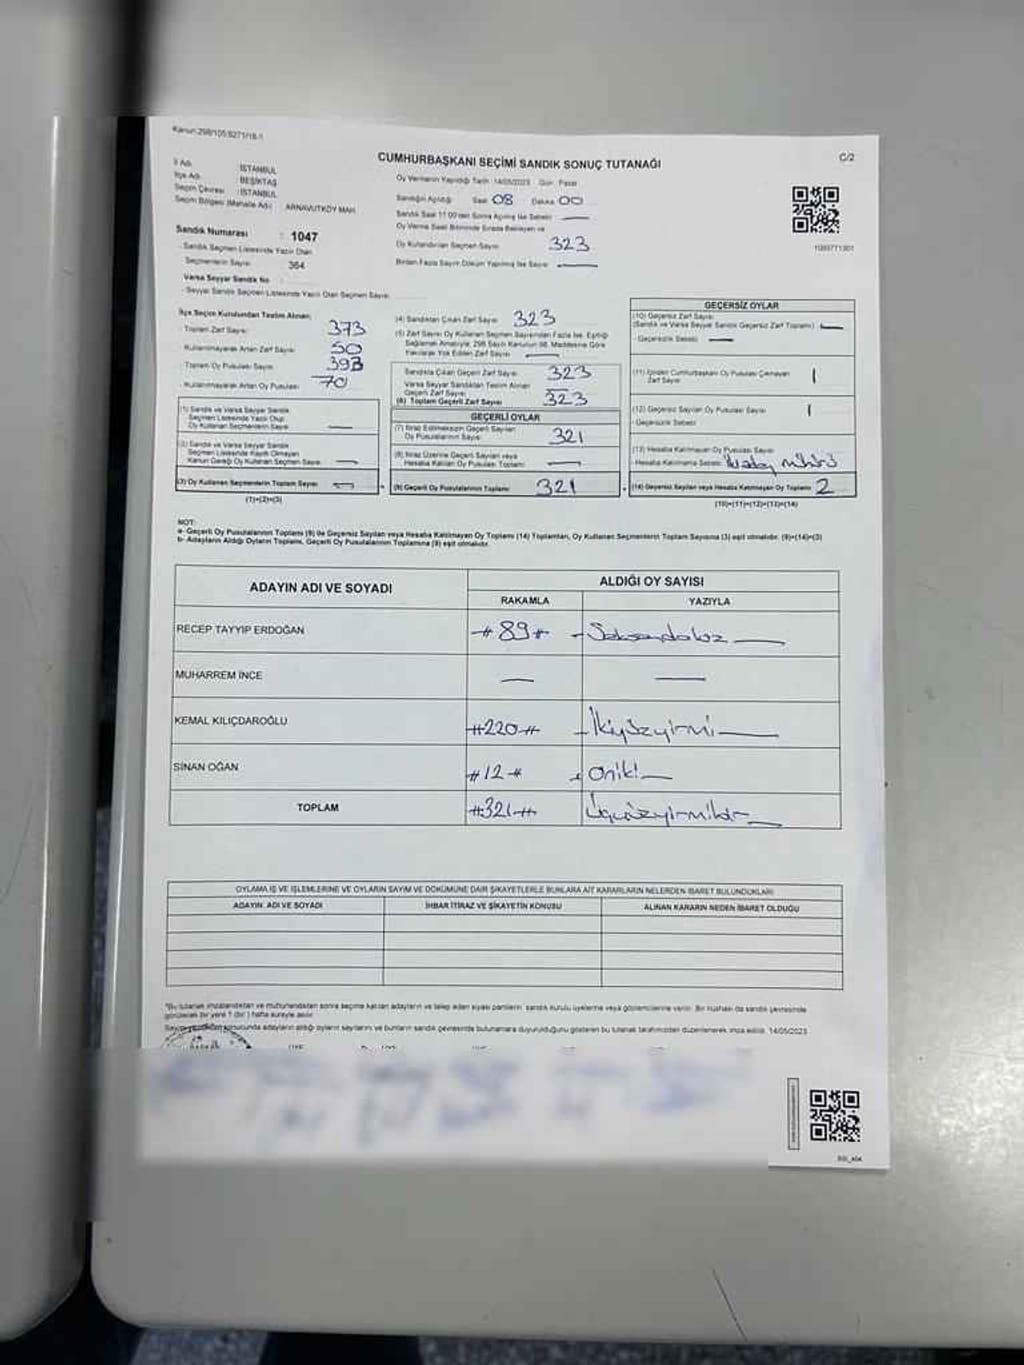 Kanun:298/105;6271/18-1
CUMHURBAŞKANI SEÇİMİ SANDIK SONUÇ TUTANAĞI
C/2
İl Adı : İSTANBUL
İlçe Adı : BEŞİKTAŞ
Seçim Çevresi : İSTANBUL
Seçim Bölgesi (Mahalle Adı) : ARNAVUTKÖY MAH.
Oy Vermenin Yapıldığı Tarih: 14/05/2023 Gün: Pazar
Sandığın Açıldığı Saat 08 Dakika 00
Sandık Saat 11:00'den Sonra Açılmış İse Sebebi :
Oy Verme Saati Bitiminde Sırada Bekleyen ve
Oy Kullandırılan Seçmen Sayısı 323
Birden Fazla Sayım Döküm Yapılmış İse Sayısı :
Sandık Numarası : 1047
- Sandık Seçmen Listesinde Yazılı Olan
Seçmenlerin Sayısı 364
Varsa Seyyar Sandık No :
- Seyyar Sandık Seçmen Listesinde Yazılı Olan Seçmen Sayısı
İlçe Seçim Kurulundan Teslim Alınan;
- Toplam Zarf Sayısı 373
- Kullanılmayarak Artan Zarf Sayısı 50
- Toplam Oy Pusulası Sayısı 393
- Kullanılmayarak Artan Oy Pusulası 70
(1) Sandık ve Varsa Seyyar Sandık
Seçmen Listesinde Yazılı Olup
Oy Kullanan Seçmenlerin Sayısı
(2) Sandık ve Varsa Seyyar Sandık
Seçmen Listesinde Kayıtlı Olmayan
Kanun Gereği Oy Kullanan Seçmen Sayısı
(3) Oy Kullanan Seçmenlerin Toplam Sayısı
(1)+(2)=(3)
(4) Sandıktan Çıkan Zarf Sayısı 323
(5) Zarf Sayısı Oy Kullanan Seçmen Sayısından Fazla İse, Eşitliği
Sağlamak Amacıyla; 298 Sayılı Kanunun 98. Maddesine Göre
Yakılarak Yok Edilen Zarf Sayısı
Sandıkta Çıkan Geçerli Zarf Sayısı 323
Varsa Seyyar Sandıktan Teslim Alınan
Geçerli Zarf Sayısı
(6) Toplam Geçerli Zarf Sayısı 323
GEÇERLİ OYLAR
(7) İtiraz Edilmeksizin Geçerli Sayılan
Oy Pusulalarının Sayısı 321
(8) İtiraz Üzerine Geçerli Sayılan veya
Hesaba Katılan Oy Pusulası Toplamı
(9) Geçerli Oy Pusulalarının Toplamı 321
GEÇERSİZ OYLAR
(10) Geçersiz Zarf Sayısı
(Sandık ve Varsa Seyyar Sandık Geçersiz Zarf Toplamı)
- Geçersizlik Sebebi
(11) İçinden Cumhurbaşkanı Oy Pusulası Çıkmayan
Zarf Sayısı 1
(12) Geçersiz Sayılan Oy Pusulası Sayısı 1
- Geçersizlik Sebebi
(13) Hesaba Katılmayan Oy Pusulası Sayısı
- Hesaba Katılmama Sebebi mührü
(14) Geçersiz Sayılan veya Hesaba Katılmayan Oy Toplamı 2
(10)+(11)+(12)+(13)=(14)
NOT:
a- Geçerli Oy Pusulalarının Toplamı (9) ile Geçersiz Sayılan veya Hesaba Katılmayan Oy Toplamı (14) Toplamları, Oy Kullanan Seçmenlerin Toplam Sayısına (3) eşit olmalıdır. (9)+(14)=(3)
b- Adayların Aldığı Oyların Toplamı, Geçerli Oy Pusulalarının Toplamına (9) eşit olmalıdır.
ADAYIN ADI VE SOYADI
ALDIĞI OY SAYISI
RAKAMLA YAZIYLA
RECEP TAYYIP ERDOĞAN #89# Seksendokuz
MUHARREM İNCE
KEMAL KILIÇDAROĞLU #220# İkiyüzyirmi
SİNAN OĞAN #12# Oniki
TOPLAM #321# Üçyüzyirmibir
OYLAMA İŞ VE İŞLEMLERİNE VE OYLARIN SAYIM VE DÖKÜMÜNE DAİR ŞİKAYETLERLE BUNLARA AİT KARARLARIN NELERDEN İBARET BULUNDUKLARI
ADAYIN ADI VE SOYADI İHBAR İTİRAZ VE ŞİKAYETİN KONUSU ALINAN KARARIN NEDEN İBARET OLDUĞU
*Bu tutanak imzalandıktan ve mühürlendikten sonra seçime katılan adayların ve talep eden siyasi partilerin sandık kurulu üyelerine veya gözlemcilerine verilir. Bir nüshası da sandık çevresinde
görülecek bir yere 1 (bir) hafta süreyle asılır.
sonucunda adayların aldığı oyların sayılarını ve bunların sandık çevresinde bulunanlara duyurulduğunu gösteren bu tutanak tarafımızdan düzenlenerek imza edildi. 14/05/2023
BAŞKAN